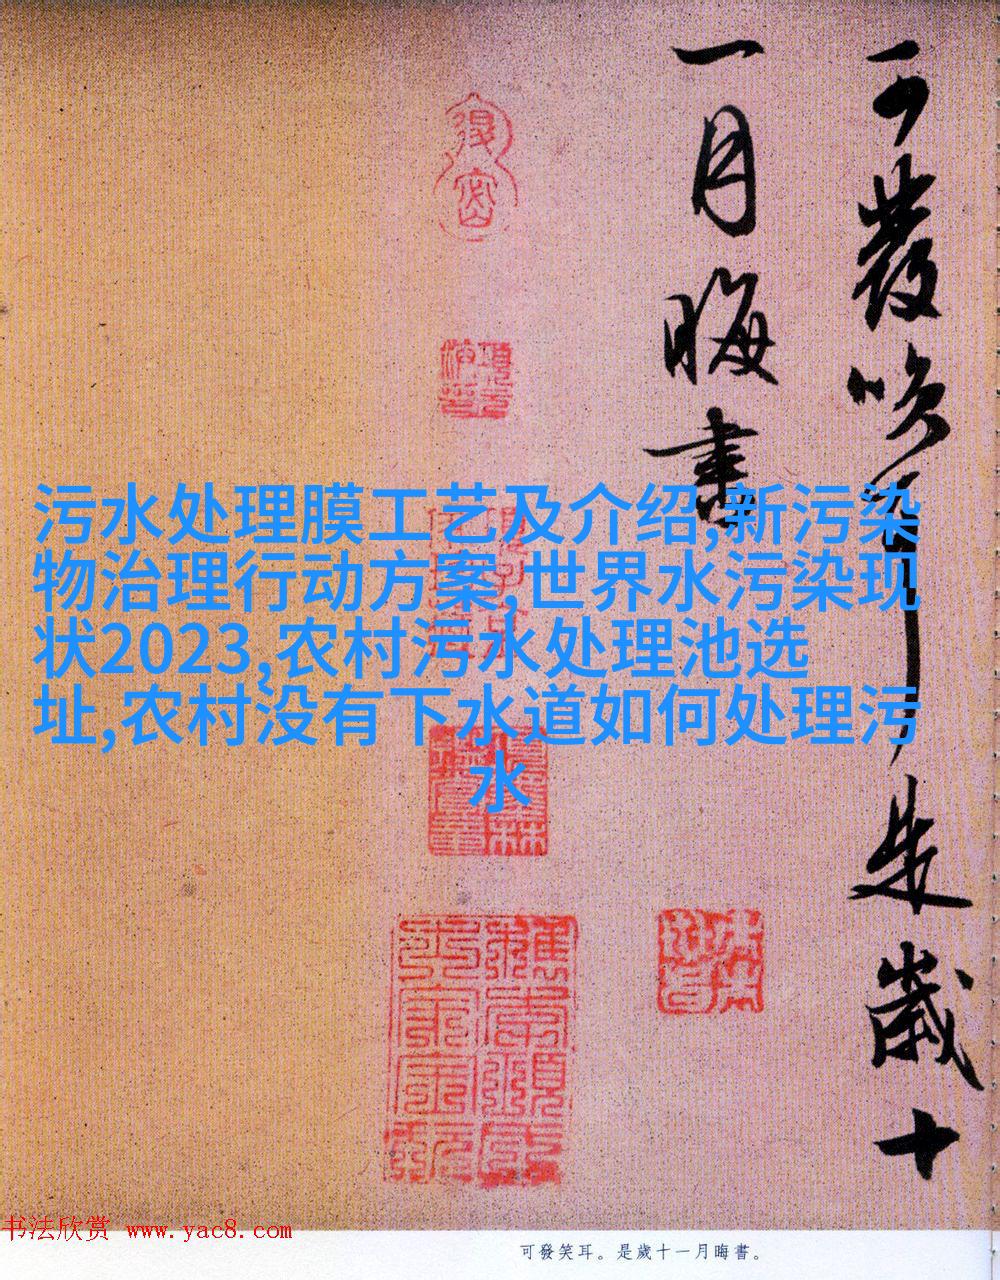 可發笑耳是歲十
一月晦書
污水处理膜工艺及介绍,新污染
物治理行动方案,世界水污染现
状2023,农村污水处理池选
址,农村没有下水道如何处理污
水
书法欣赏 www.yac8.com
可發笑耳。是歲十一月晦書。